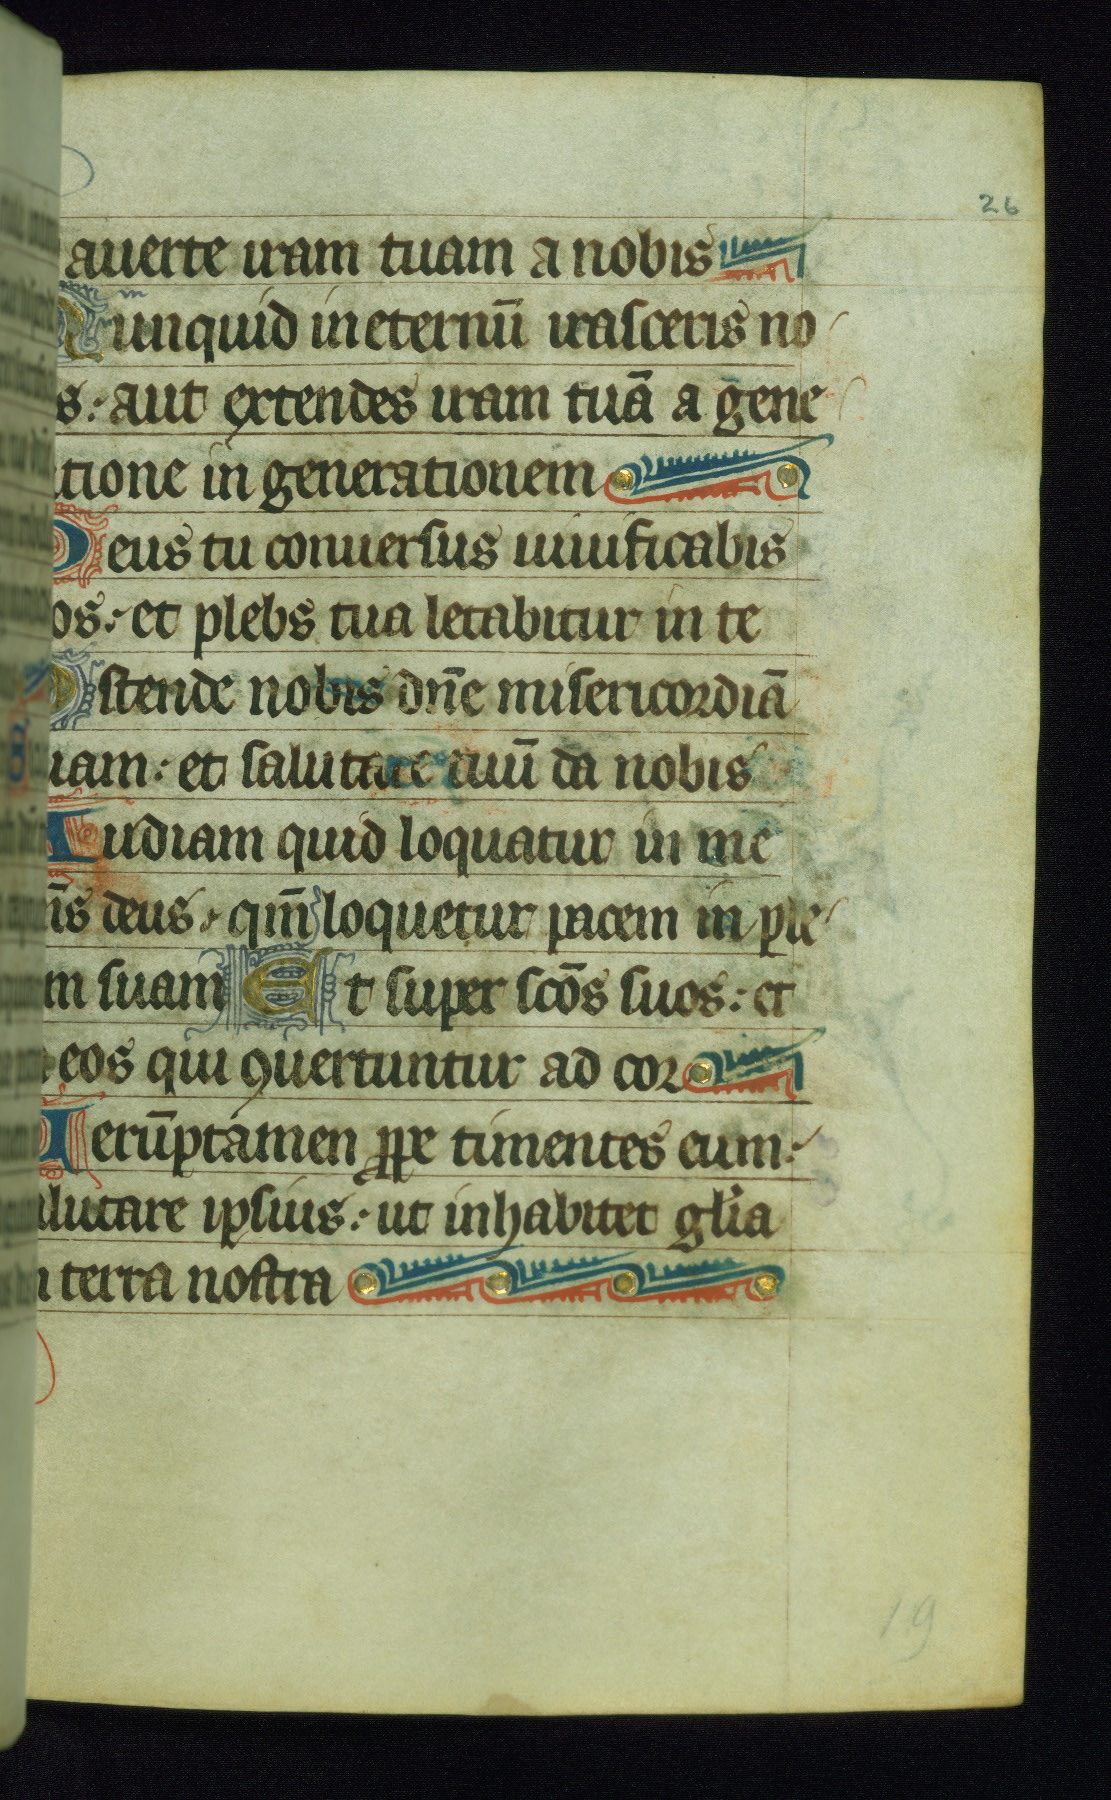 26
averte iram tuam a nobis
Nunquid in eternū irasceris no
s: aut extendes iram tuā a gene
tione in generationem
Deus tu conversus vivificabis
os: et plebs tua letabitur in te
Ostende nobis dn̄e misericordiā
uam: et salutare tuū da nobis
Audiam quid loquatur in me
n̄s deus: qm̄ loquetur pacem in ple
m suam Et super scōs suos: et
eos qui ꝯvertuntur ad cor
Verūptamen ꝓpe timentes eum:
alutare ipsius: ut inhabitet gl̄ia
n terra nostra
19